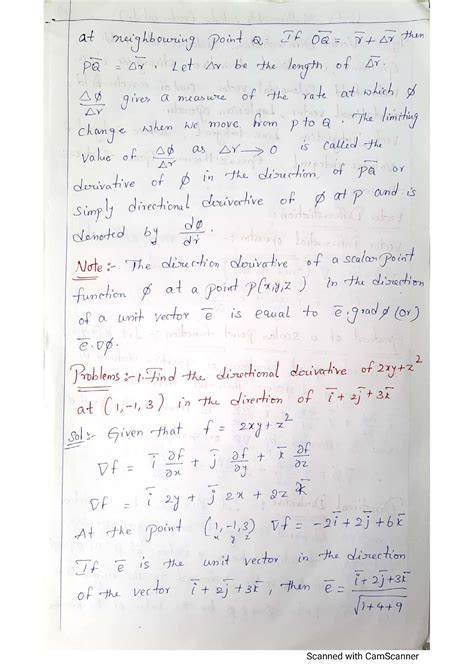 at neighbouring point Q. If O̅Q̅ = r̅ + Δr̅ then
P̅Q̅ = Δr̅. Let Δr be the length of Δr̅.
Δϕ/Δr gives a measure of the rate at which ϕ
change when we move from P to Q. The limiting
value of Δϕ/Δr as Δr → 0 is called the
derivative of ϕ in the direction of P̅Q̅ or
simply directional derivative of ϕ at P and is
denoted by dϕ/dr.
Note :- The direction derivative of a scalar point
function ϕ at a point P(x,y,z) in the direction
of a unit vector e̅ is equal to e̅.grad ϕ (or)
e̅.∇ϕ.
Problems :- 1. Find the directional derivative of 2xy+z²
at (1,-1,3) in the direction of i̅+2j̅+3k̅
Sol :- Given that f = 2xy+z²
∇f = i̅ ∂f/∂x + j̅ ∂f/∂y + k̅ ∂f/∂z
∇f = i̅ 2y + j̅ 2x + 2z k̅
At the point (1,-1,3) ∇f = -2i̅+2j̅+6k̅
x y z
If e̅ is the unit vector in the direction
of the vector i̅+2j̅+3k̅, then e̅ = i̅+2j̅+3k̅/√1+4+9
Scanned with CamScanner